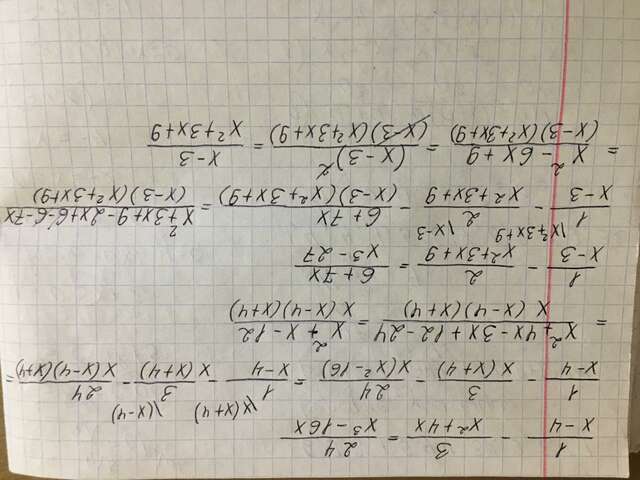 1/(x-4) - 3/(x²+4x) = 24/(x³-16x)
\x(x+4) \(x-4)
1/(x-4) - 3/(x(x+4)) - 24/(x(x²-16)) = 1/(x-4) - 3/(x(x+4)) - 24/(x(x-4)(x+4)) =
= (x²+4x-3x+12-24)/(x(x-4)(x+4)) = (x²+x-12)/(x(x-4)(x+4))
1/(x-3) - 2/(x²+3x+9) = (6+7x)/(x³-27)
\x²+3x+9 \x-3
1/(x-3) - 2/(x²+3x+9) - (6+7x)/((x-3)(x²+3x+9)) = (x²+3x+9-2x+6-6-7x)/((x-3)(x²+3x+9))
= (x²-6x+9)/((x-3)(x²+3x+9)) = (x-3)²/((x-3)(x²+3x+9)) = (x-3)/(x²+3x+9)